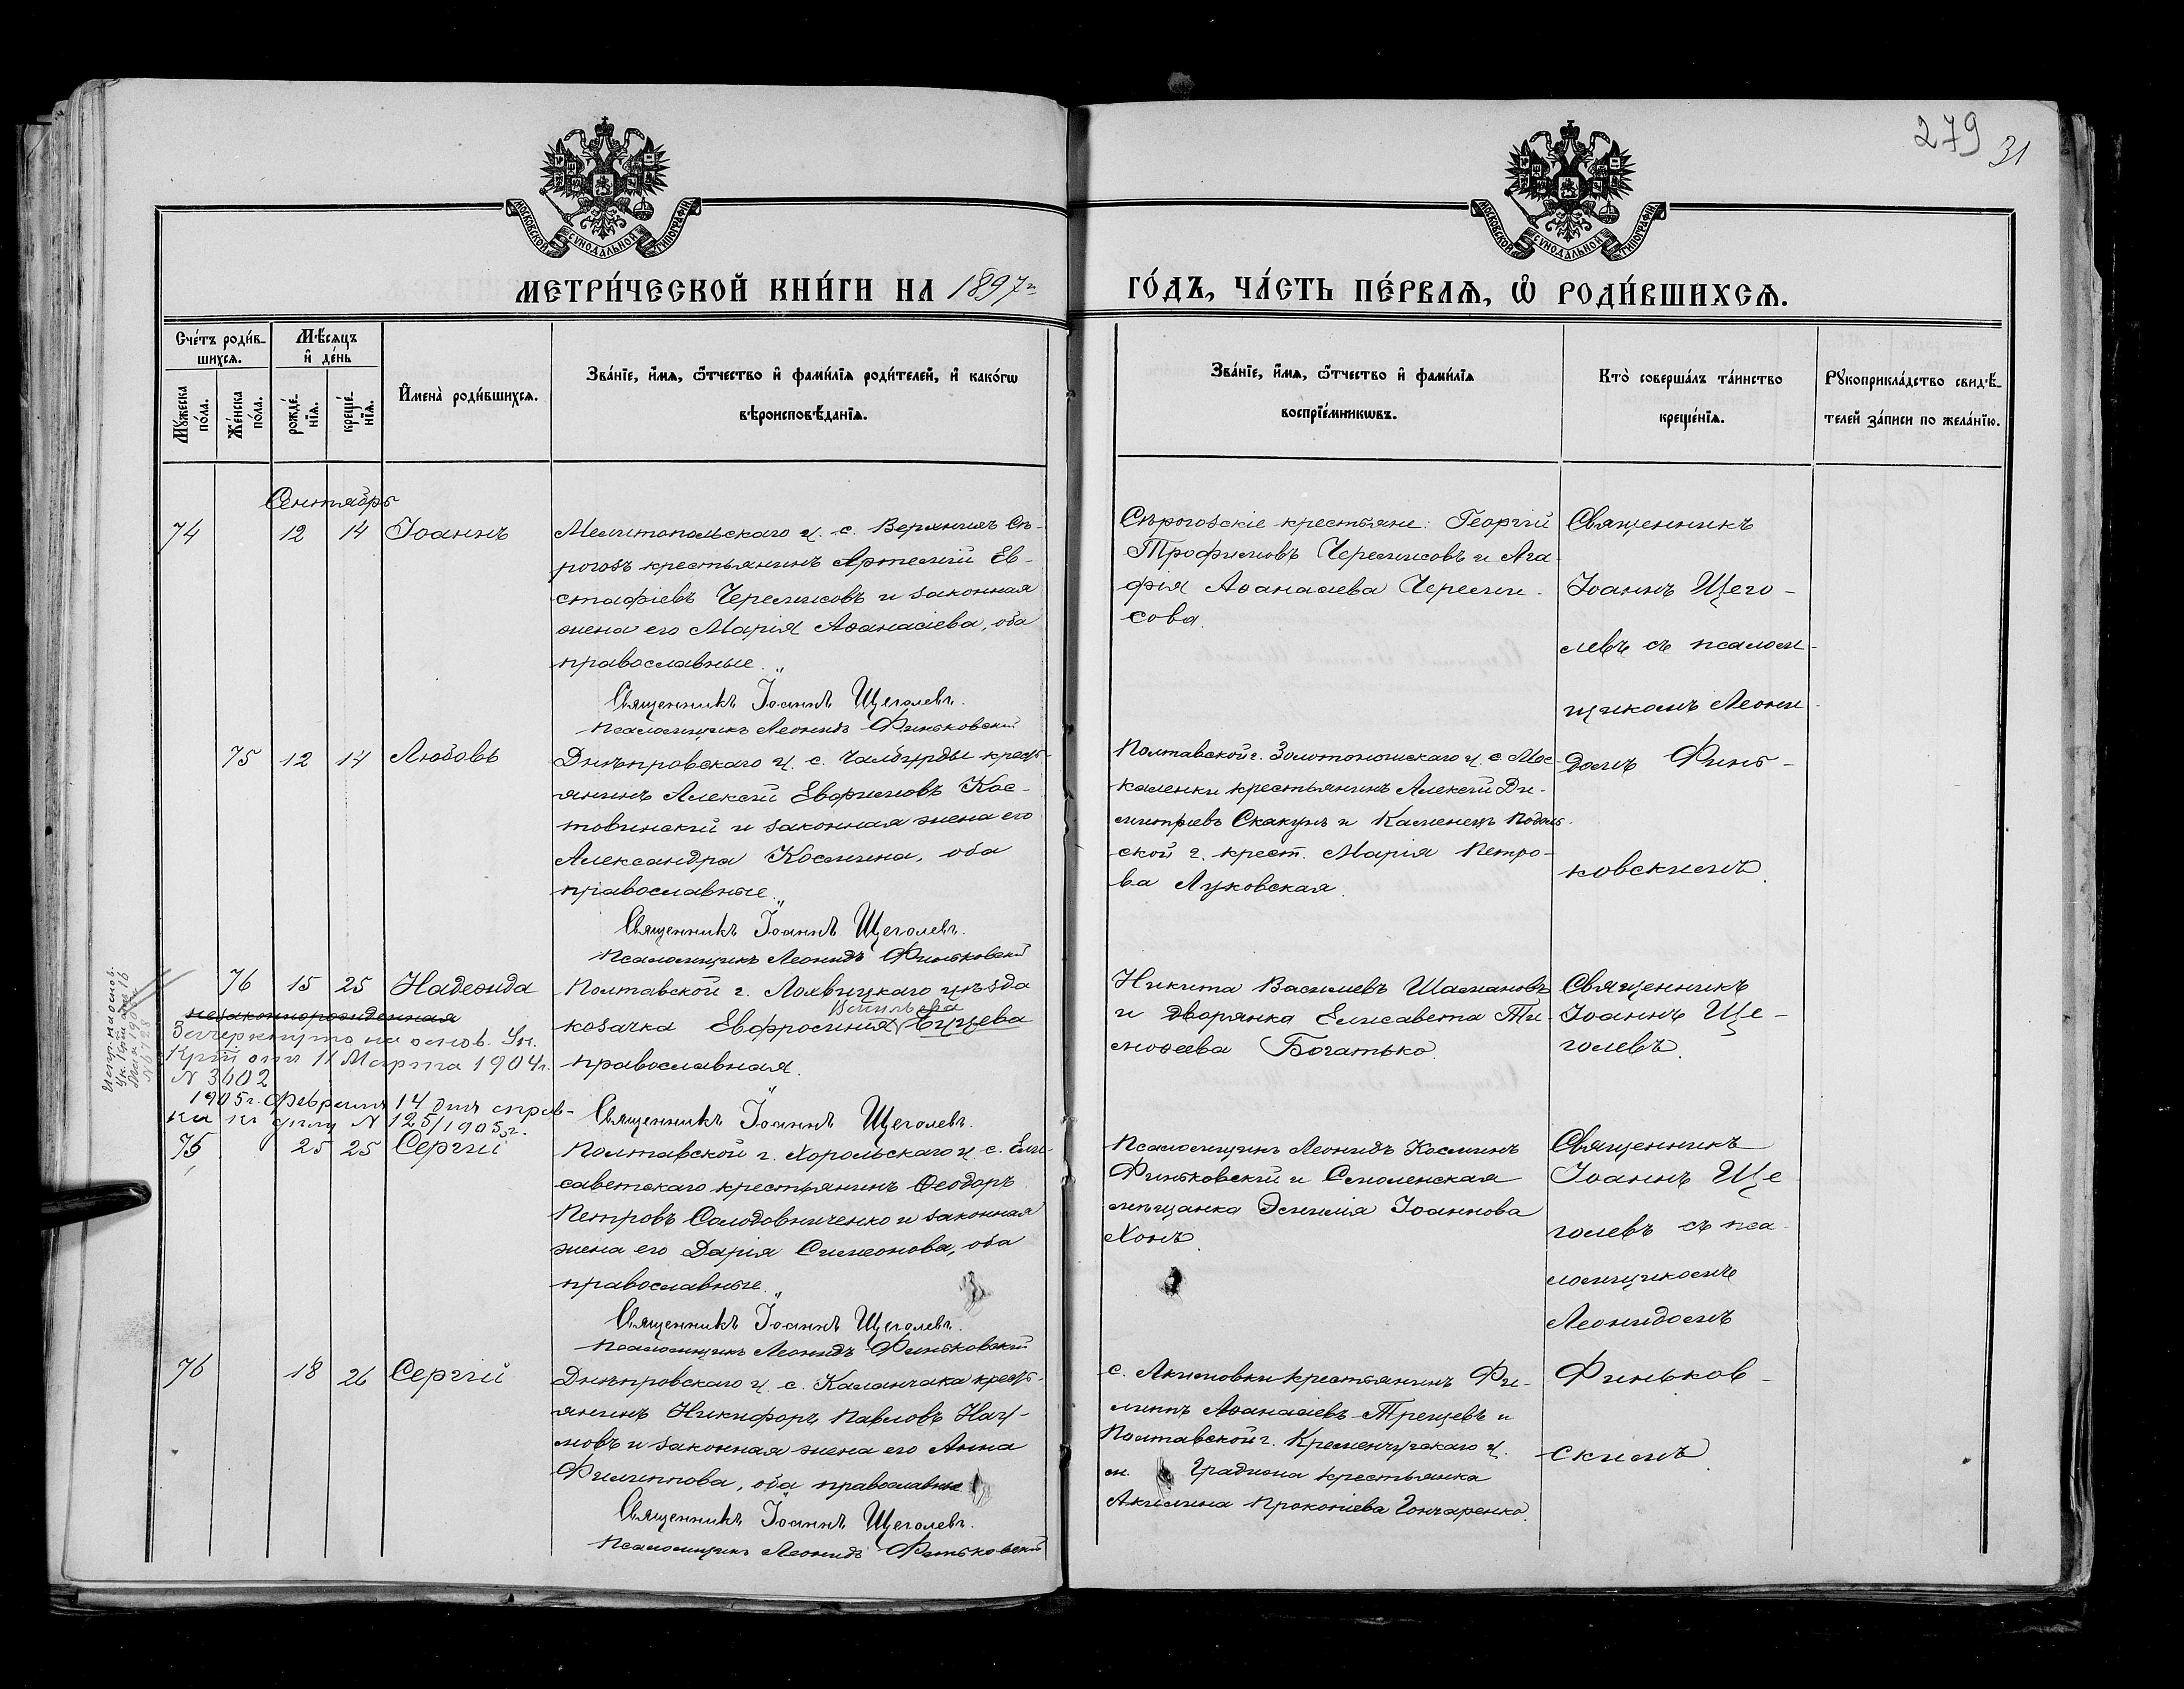 279 31
МОСКОВСКОЙ СѴНОДАЛЬНОЙ ТИПОГРАФІИ
МОСКОВСКОЙ СѴНОДАЛЬНОЙ ТИПОГРАФІИ
МЕТРИ́ЧЕСКОЙ КНИ́ГИ НА 1897 г.
ГО́ДЪ, ЧА́СТЬ ПЕ́РВАѦ, Ѡ҆ РОДИ́ВШИХСѦ.
Сче́тъ роди́в-
шихсѧ.
Мꙋ́жеска
по́ла.
Же́нска
по́ла.
Мѣ́сѧцъ
и҆ де́нь
рожде́-
нїѧ.
креще́-
нїѧ.
И҆мена̀ роди́вшихсѧ.
Зва́нїе, и҆́мѧ, ѻ҆́тчество и҆ фами́лїѧ роди́телей, и҆ како́гѡ
вѣроисповѣ́данїѧ.
Зва́нїе, и҆́мѧ, ѻ҆́тчество и҆ фами́лїѧ
воспрїе́мникѡвъ.
Кто̀ соверша́лъ та́инство
креще́нїѧ.
Рꙋкоприкла́дство свидѣ́-
телей за́писи по жела́нїю.
Сентябрь
74 12 14 Іоаннъ
Мелитопольскаго у. с. Верхнихъ Сѣ-
рогозъ крестьянинъ Артемій Ев-
стафіевъ Черемисовъ и законная
жена его Марія Аѳанасіева, оба
православные.
Священникъ Іоаннъ Щеголевъ.
Псаломщикъ Леонидъ Финьковскій
Сѣрогозскіе крестьяне: Георгій
Трофимовъ Черемисовъ и Ага-
фія Аѳанасіева Череми-
сова.
Священникъ
Іоаннъ Щего-
левъ съ псалом-
щикомъ Леони-
домъ Финь-
ковскимъ.
75 12 14 Любовь
Днѣпровскаго у. с. Чалбурды кресть-
янинъ Алексій Евфимовъ Кос-
товинскій и законная жена его
Александра Космина, оба
православные.
Священникъ Іоаннъ Щеголевъ.
Псаломщикъ Леонидъ Финьковскій
Полтавской г. Золотоношскаго у. с. Мос-
каленки крестьянинъ Алексій Ди-
митріевъ Скакунъ и Каменецъ Подоль-
ской г. крест. Марія Петро-
ва Луковская.
76 15 25 Надежда
незаконнорожденная
Зачеркнуто на основ. Ук.
от 11 Марта 1904 г.
N 3602
1905 г. Февраля 14 дня справ-
ка къ дѣлу N 125/1905 г.
Полтавской г. Лохвицкаго уѣзда
козачка Евфросинія
православная.
Священникъ Іоаннъ Щеголевъ.
Никита Василіевъ Шамановъ
и дворянка Елисавета Ти-
моѳеева Богатько.
Священникъ
Іоаннъ Ще-
голевъ.
75 25 25 Сергій
Полтавской г. Хорольскаго у. с. Ели-
саветскаго крестьянинъ Ѳеодоръ
Петровъ Солодовниченко и законная
жена его Дарія Симеонова, оба
православные.
Священникъ Іоаннъ Щеголевъ.
Псаломщикъ Леонидъ Финьковскій
Псаломщикъ Леонидъ Косминъ
Финьковскій и Смоленская
мѣщанка Эмилія Іоаннова
Хонъ.
Священникъ
Іоаннъ Ще
голевъ съ пса-
ломщикомъ
Леонидомъ
Финьков-
скимъ.
76 18 26 Сергій
Днѣпровскаго у. с. Каланчака кресть-
янинъ Никифоръ Павловъ Нау-
мовъ и законная жена его Анна
Филиппова, оба православные
Священникъ Іоаннъ Щеголевъ.
Псаломщикъ Леонидъ Финьковскій
с. Акимовки крестьянинъ Фи-
липпъ Аѳанасіевъ Трещевъ и
Полтавской г. Кременчугскаго у.
м. Градижа крестьянка
Акилина Прокопіева Гончаренко.